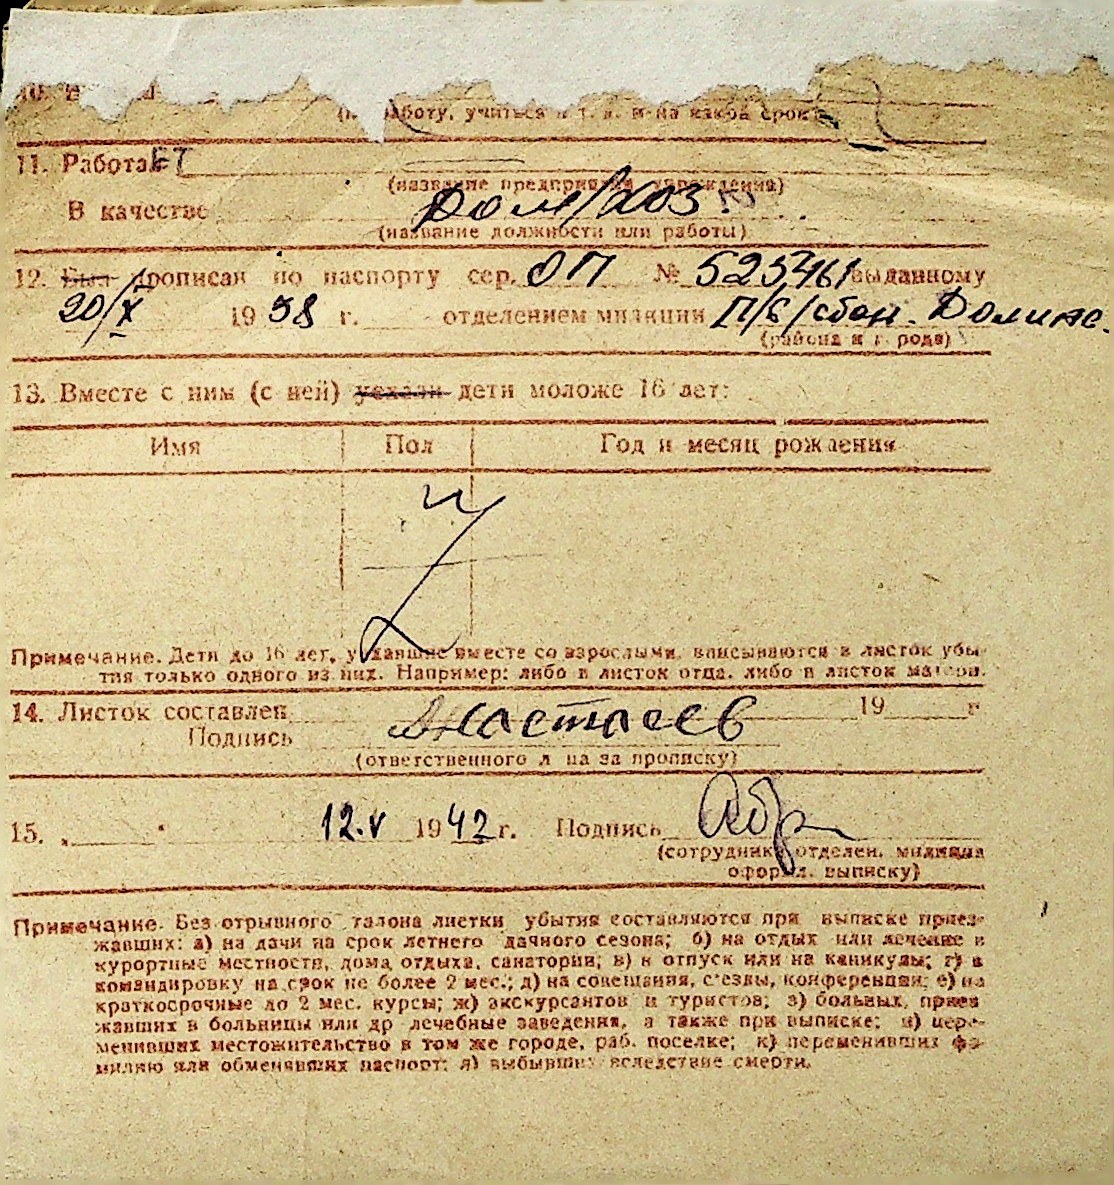 10.
(на работу, учиться и т. д. и на какой срок)
11. Работает
(название предприятия, учреждения)
В качестве дом/хоз.
(название должности или работы)
12. Был прописан по паспорту сер. ОП № 525461 выданному
20/X 1938 г. отделением милиции П/б/сбан. Долинс.
(района и города)
13. Вместе с ним (с ней) уехали дети моложе 16 лет:
Имя Пол Год и месяц рождения
Примечание. Дети до 16 лет, уехавшие вместе со взрослыми, вписываются в листок убы-
тия только одного из них. Например: либо в листок отца, либо в листок матери.
14. Листок составлен 19 г
Подпись Анастасев
(ответственного лица за прописку)
15. „ “ 12.V 1942 г. Подпись
(сотрудника отделен. милиции
оформл. выписку)
Примечание. Без отрывного талона листки убытия составляются при выписке приез-
жавших: а) на дачи на срок летнего дачного сезона; б) на отдых или лечение в
курортные местности, дома отдыха, санатории; в) в отпуск или на каникулы; г) в
командировку на срок не более 2 мес.; д) на совещания, с'езды, конференции; е) на
краткосрочные до 2 мес. курсы; ж) экскурсантов и туристов; з) больных, приез
жавших в больницы или др лечебные заведения, а также при выписке; и) пере-
менивших местожительство в том же городе, раб. поселке; к) переменивших фа-
милию или обменявших паспорт; л) выбывших вследствие смерти.